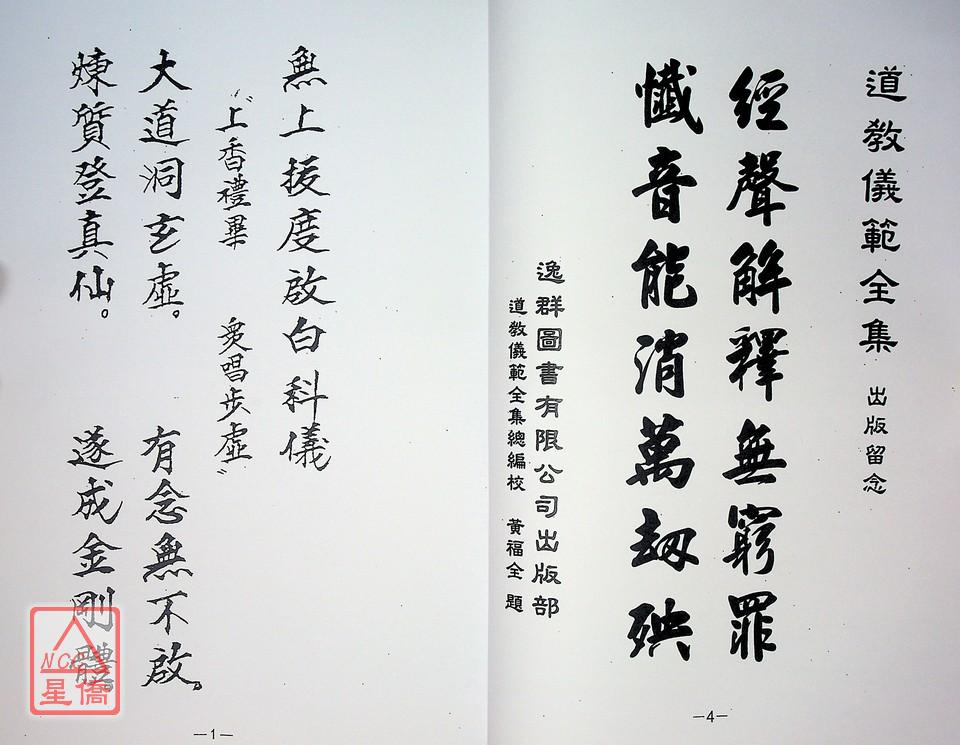 道教儀範全集 出版留念
經聲解釋無窮罪
懺音能消萬劫殃
逸群圖書有限公司出版部
道教儀範全集總編校 黃福全 題
—4—
無上拔度啟白科儀
〝上香禮畢 眾唱步虛〞
大道洞玄虛。 有念無不啟。
煉質登真仙。 遂成金剛體。
—1—
NCC
星僑